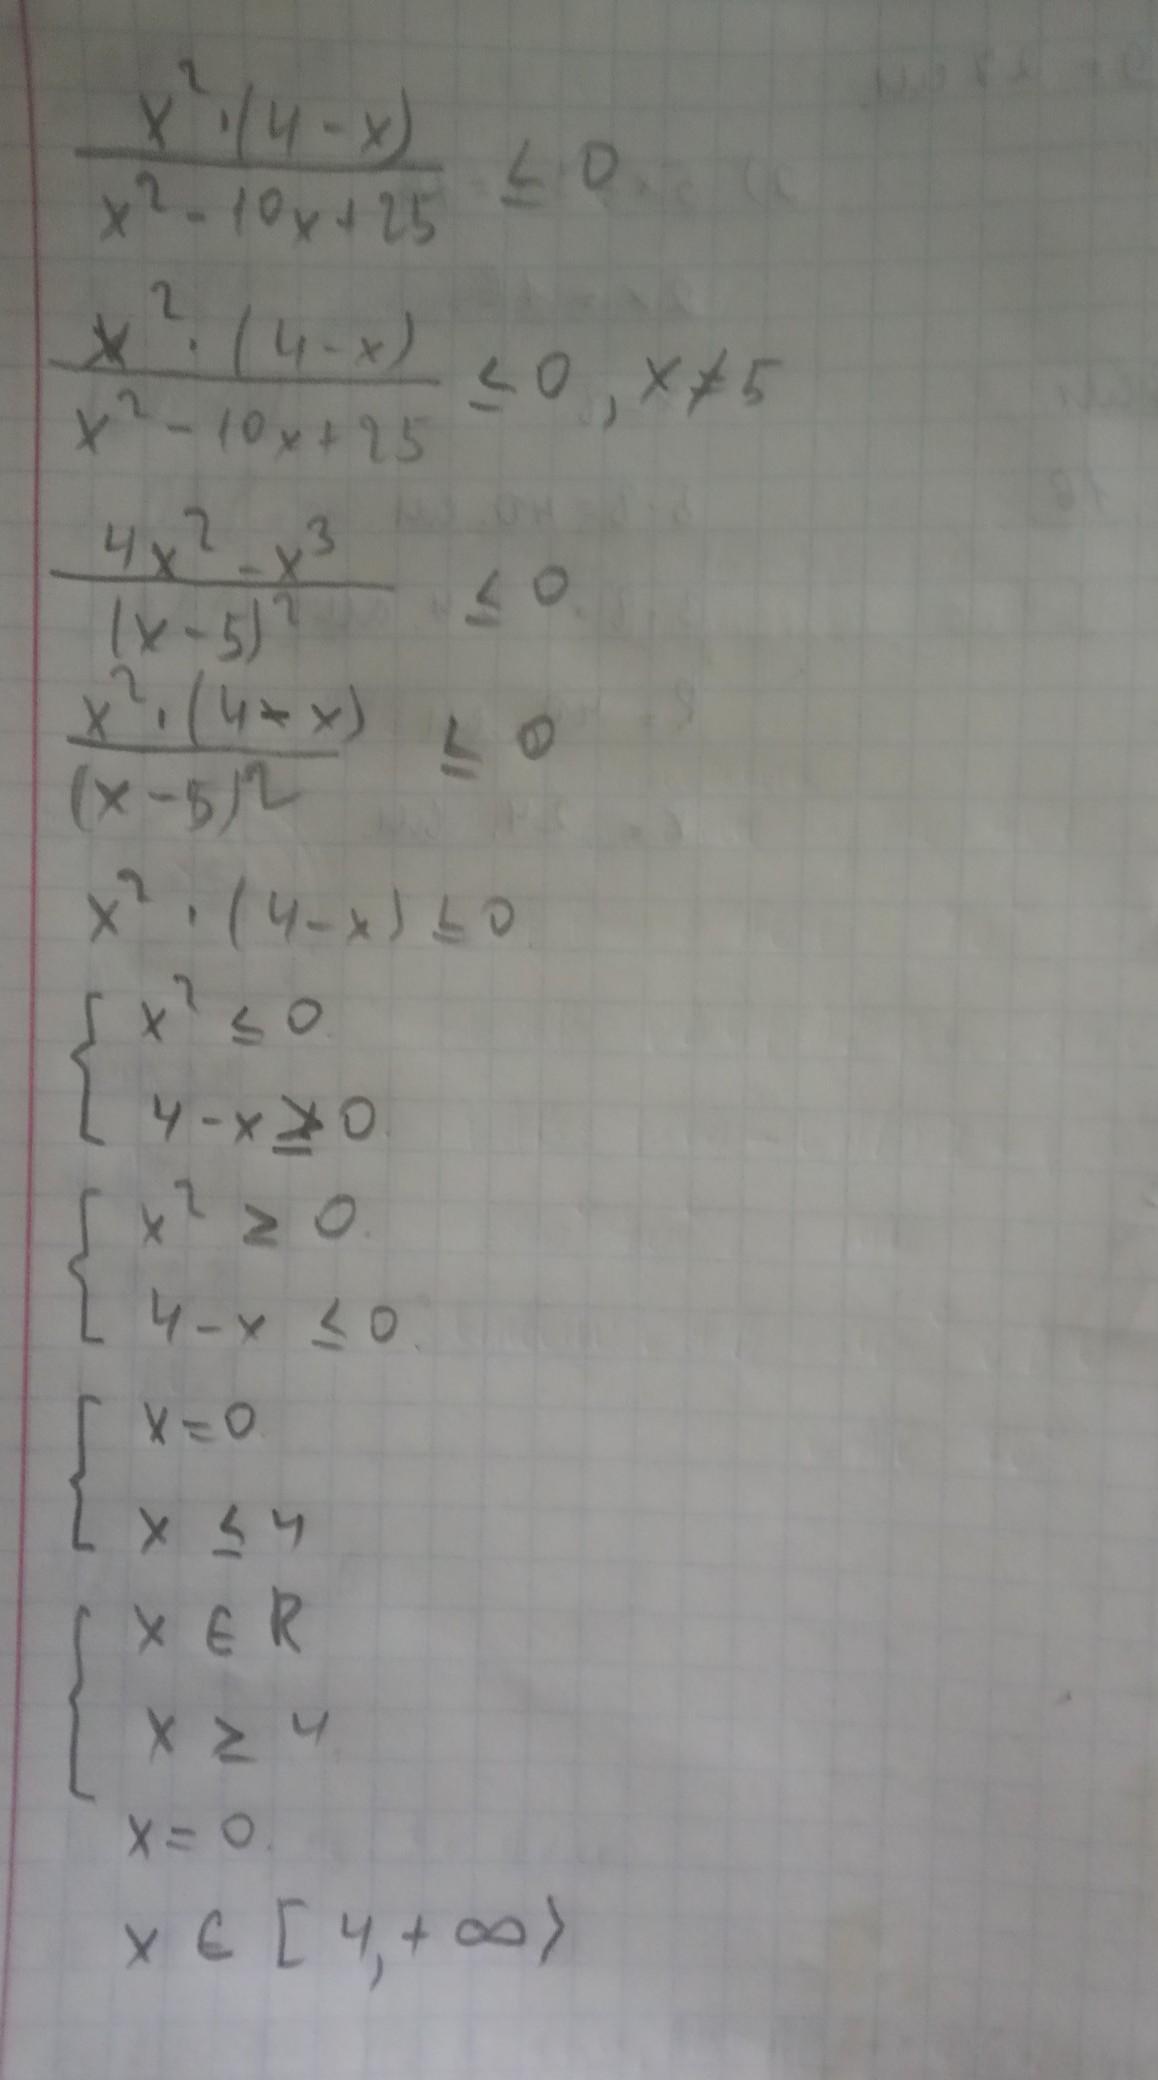 x²·(4-x)
x²-10x+25 ≤ 0
x²·(4-x)
x²-10x+25 ≤ 0, x≠5
4x²-x³
(x-5)² ≤ 0
x²·(4-x)
(x-5)² ≤ 0
x²·(4-x) ≤ 0
{ x² ≤ 0
4-x ≥ 0
{ x² ≥ 0
4-x ≤ 0
{ x=0
x ≤ 4
{ x ∈ R
x ≥ 4
x=0
x ∈ [4,+∞⟩